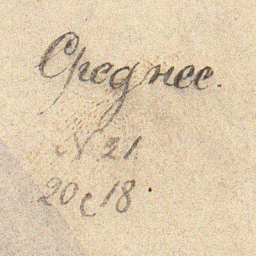 Среднее.
N 21
20 с 18.